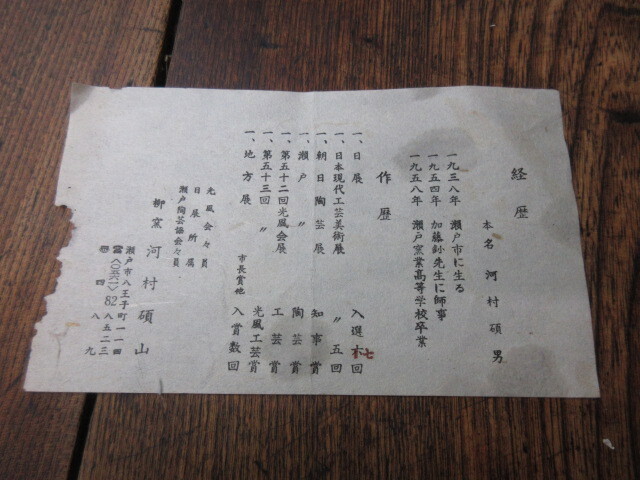 経歴
本名 河村碩男
一九三八年 瀬戸市に生る
一九五四年 加藤釥先生に師事
一九五八年 瀬戸窯業高等学校卒業
作歴
一、日展 入選七回
一、日本現代工芸美術展 〃 五回
一、朝日陶芸展 知事賞
一、瀬戸〃 陶芸賞
一、第五十二回光風会展 工芸賞
一、第五十三回 〃 光風工芸賞
一、地方展 市長賞他 入賞数回
光風会々員
日展所属
瀬戸陶芸協会々員
柳窯 河村碩山
瀬戸市八王子町一一四
☎〈〇五六一〉82 八五二三
㊞ 四八九